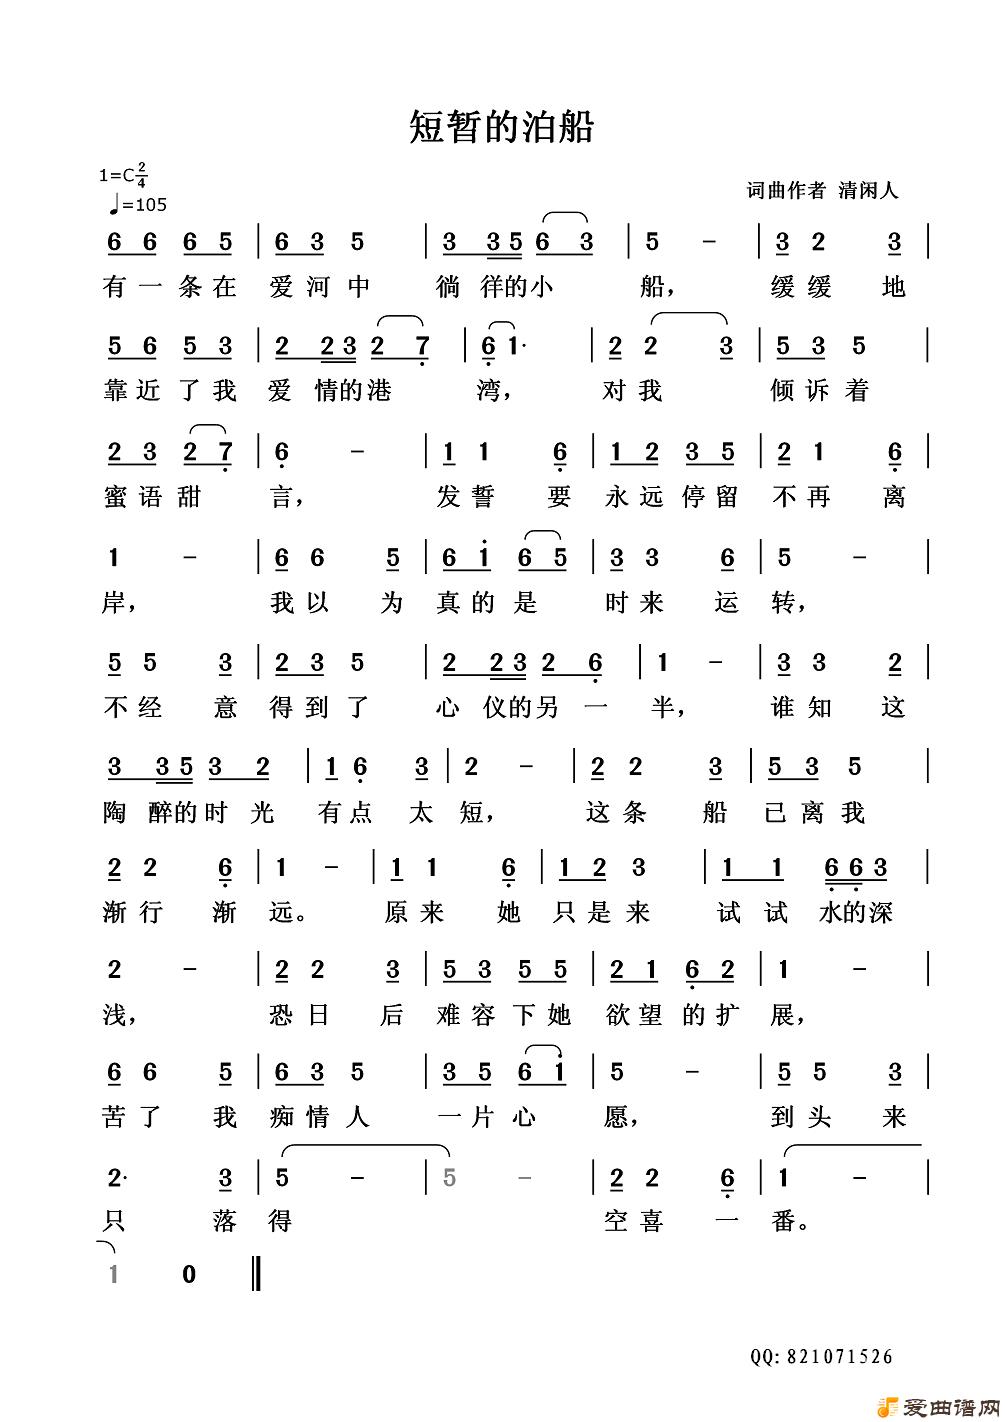 短暂的泊船
1=C2/4
♩=105
词曲作者 清闲人
6 6 6 5 | 6 3 5 | 3 3 5 6 3 | 5 – | 3 2 3 |
有一条在 爱河中 徜徉的小 船， 缓缓地
5 6 5 3 | 2 2 3 2 7 | 6 1· | 2 2 3 | 5 3 5 |
靠近了我 爱情的港 湾， 对我 倾诉着
2 3 2 7 | 6 – | 1 1 6 | 1 2 3 5 | 2 1 6 |
蜜语甜 言， 发誓要 永远停留 不再离
1 – | 6 6 5 | 6 1 6 5 | 3 3 6 | 5 – |
岸， 我以为 真的是 时来运 转，
5 5 3 | 2 3 5 | 2 2 3 2 6 | 1 – | 3 3 2 |
不经意 得到了 心仪的另一 半， 谁知这
3 3 5 3 2 | 1 6 3 | 2 – | 2 2 3 | 5 3 5 |
陶醉的时光 有点太 短， 这条船 已离我
2 2 6 | 1 – | 1 1 6 | 1 2 3 | 1 1 6 6 3 |
渐行渐 远。 原来她 只是来 试试水的深
2 – | 2 2 3 | 5 3 5 5 | 2 1 6 2 | 1 – |
浅， 恐日后 难容下她 欲望的扩 展，
6 6 5 | 6 3 5 | 3 5 6 1 | 5 – | 5 5 3 |
苦了我 痴情人 一片心 愿， 到头来
2· 3 | 5 – | 5 – | 2 2 6 | 1 – |
只落得 空喜一 番。
1 0
QQ: 821071526
爱曲谱网